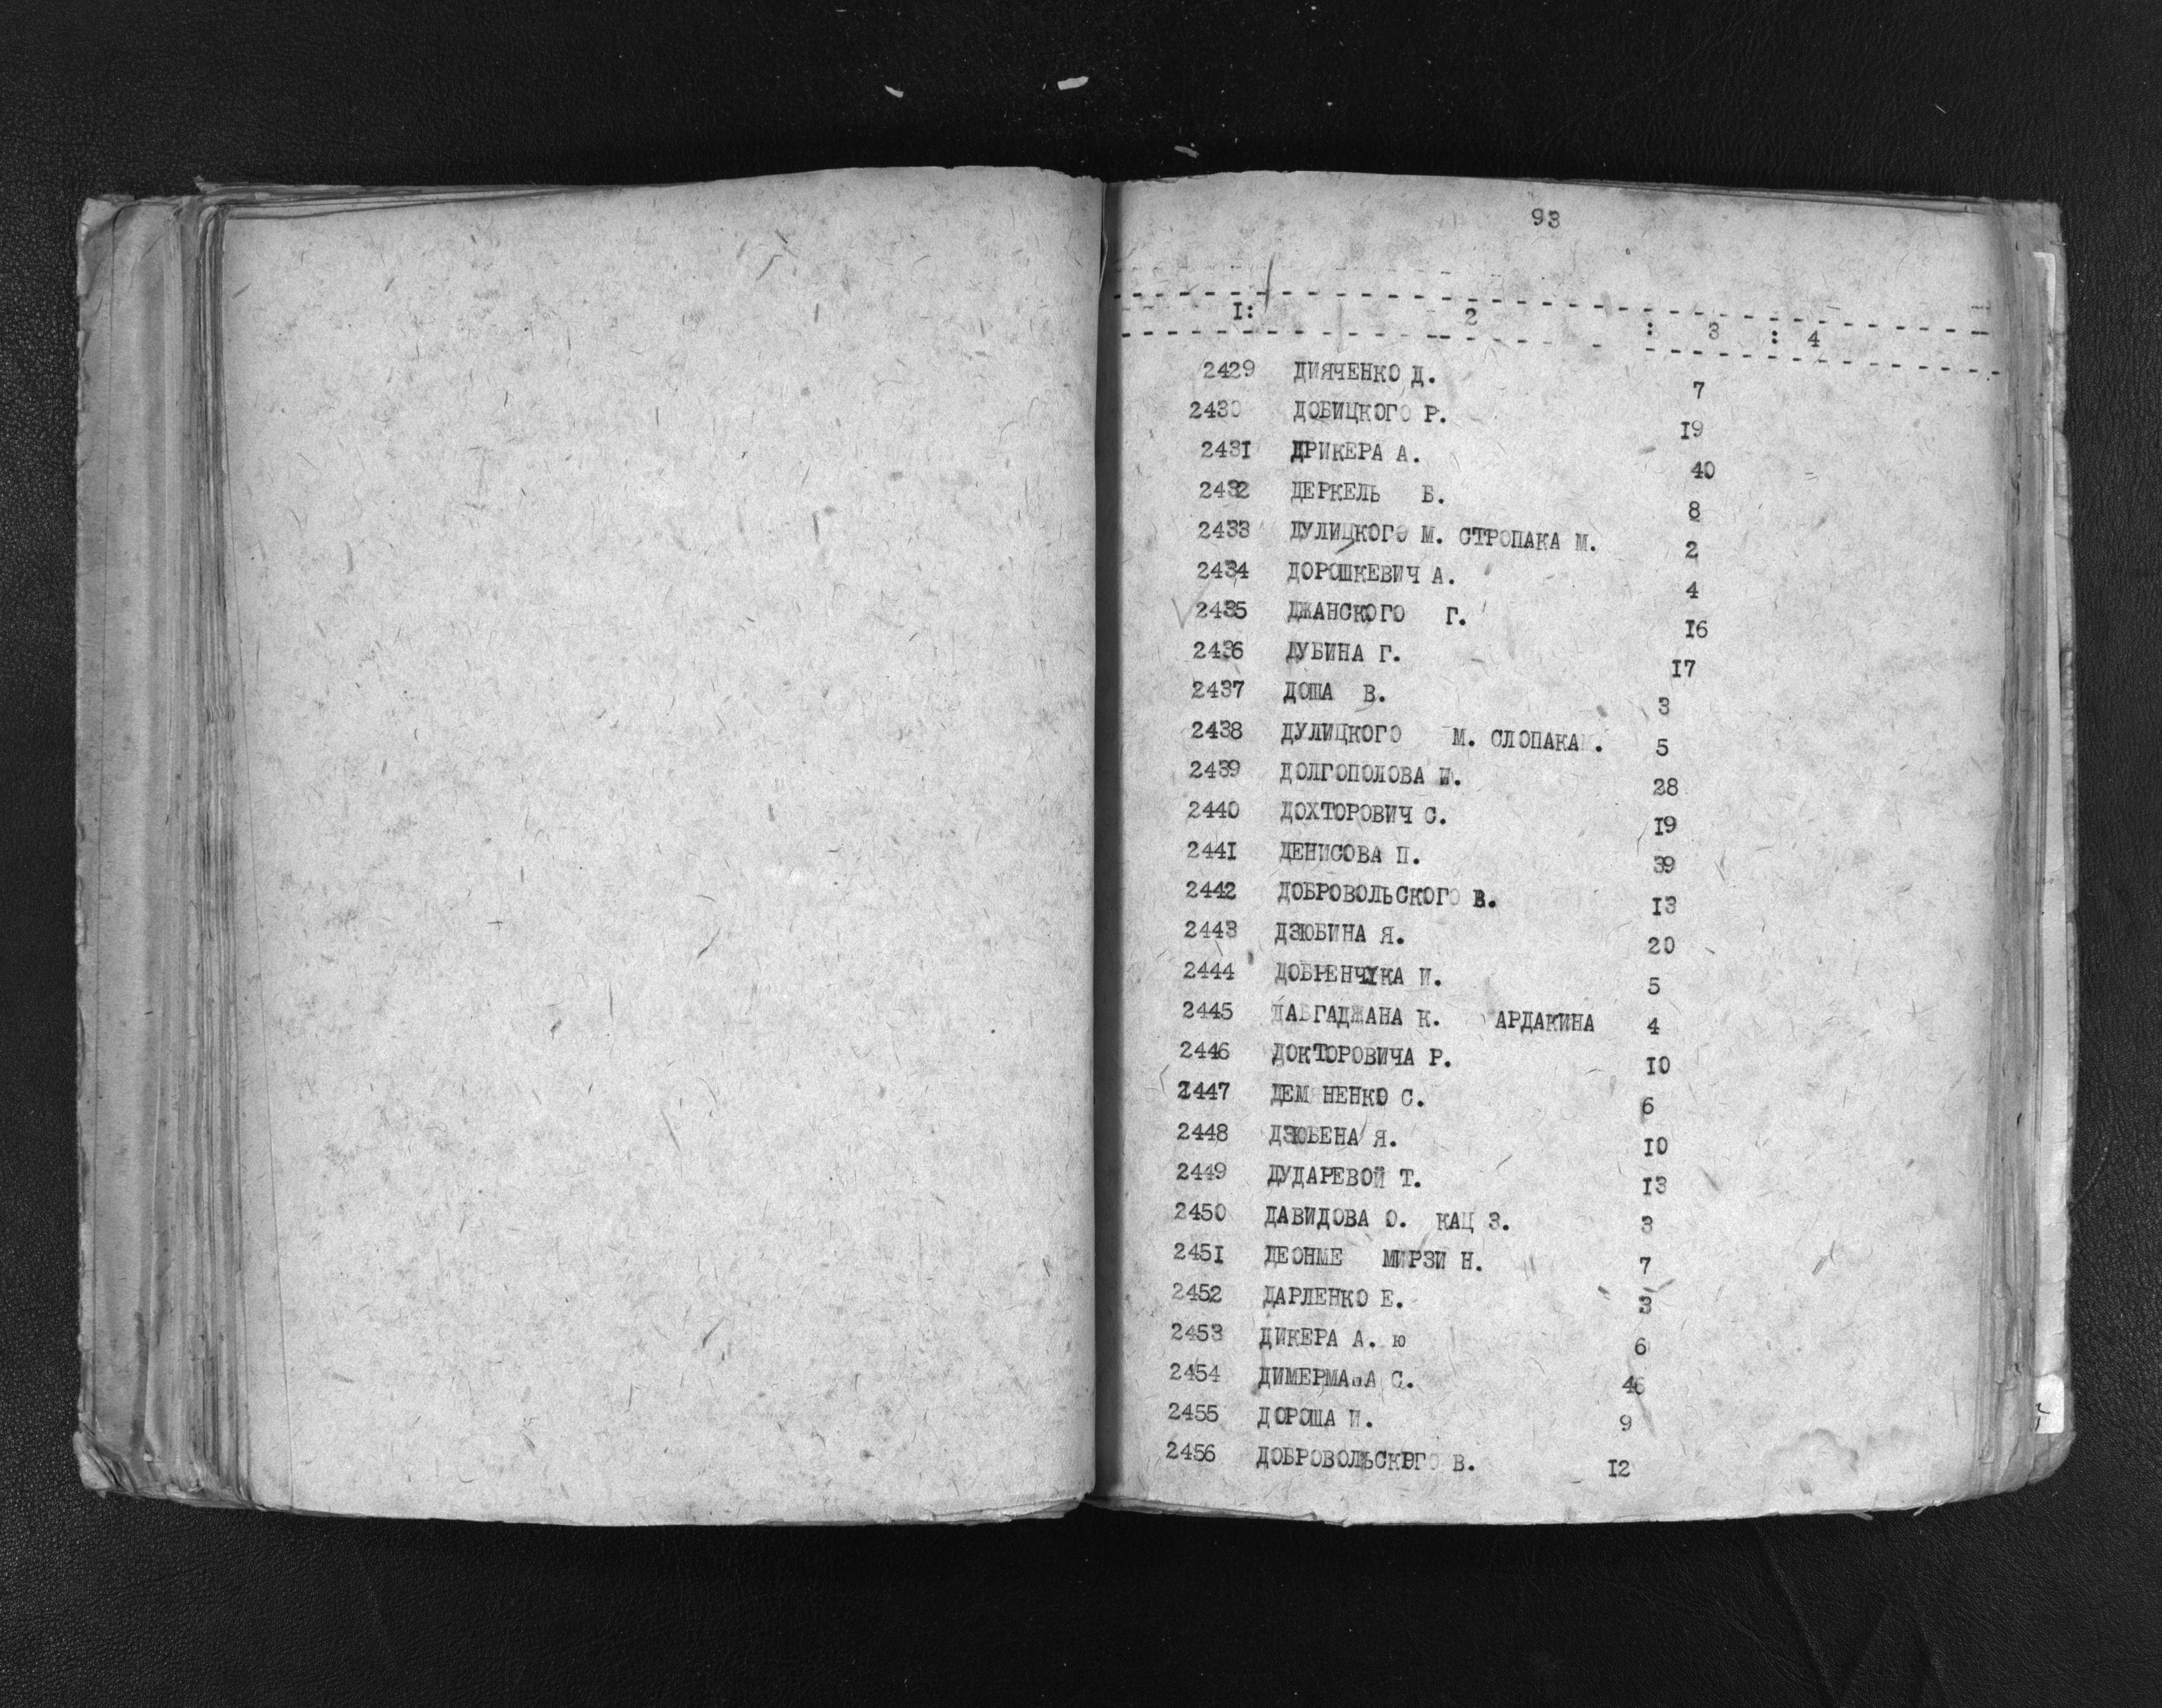 93
I: 2 : 3 : 4
2429 ДИЯЧЕНКО Д. 7
2430 ДОБИЦКОГО Р. I9
243I ДРИКЕРА А. 40
2432 ДЕРКЕЛЬ Б. 8
2433 ДУЛИЦКОГО М. СТРОПАКА М. 2
2434 ДОРОШКЕВИЧ А. 4
2435 ДЖАНСКОГО Г. I6
2436 ДУБИНА Г. I7
2437 ДОША В. 3
2438 ДУЛИЦКОГО М. СЛОПАКА . 5
2439 ДОЛГОПОЛОВА И. 28
2440 ДОХТОРОВИЧ С. I9
244I ДЕНИСОВА П. 39
2442 ДОБРОВОЛЬСКОГО В. I3
2443 ДЗЮБИНА Я. 20
2444 ДОБРЕНЧУКА И. 5
2445 К. АРДАКИНА 4
2446 ДОКТОРОВИЧА Р. I0
2447 ДЕМ НЕНКО С. 6
2448 ДЗЮБЕНА Я. I0
2449 ДУДАРЕВОЙ Т. I3
2450 ДАВИДОВА О. КАЦ З. 3
245I ДЕОНМЕ МИРЗИ Н. 7
2452 ДАРЛЕНКО Е. 3
2453 ДИКЕРА А. ю 6
2454 ДИМЕРМАНА С. 46
2455 ДОРОША И. 9
2456 ДОБРОВОЛЬСКОГО В. I2